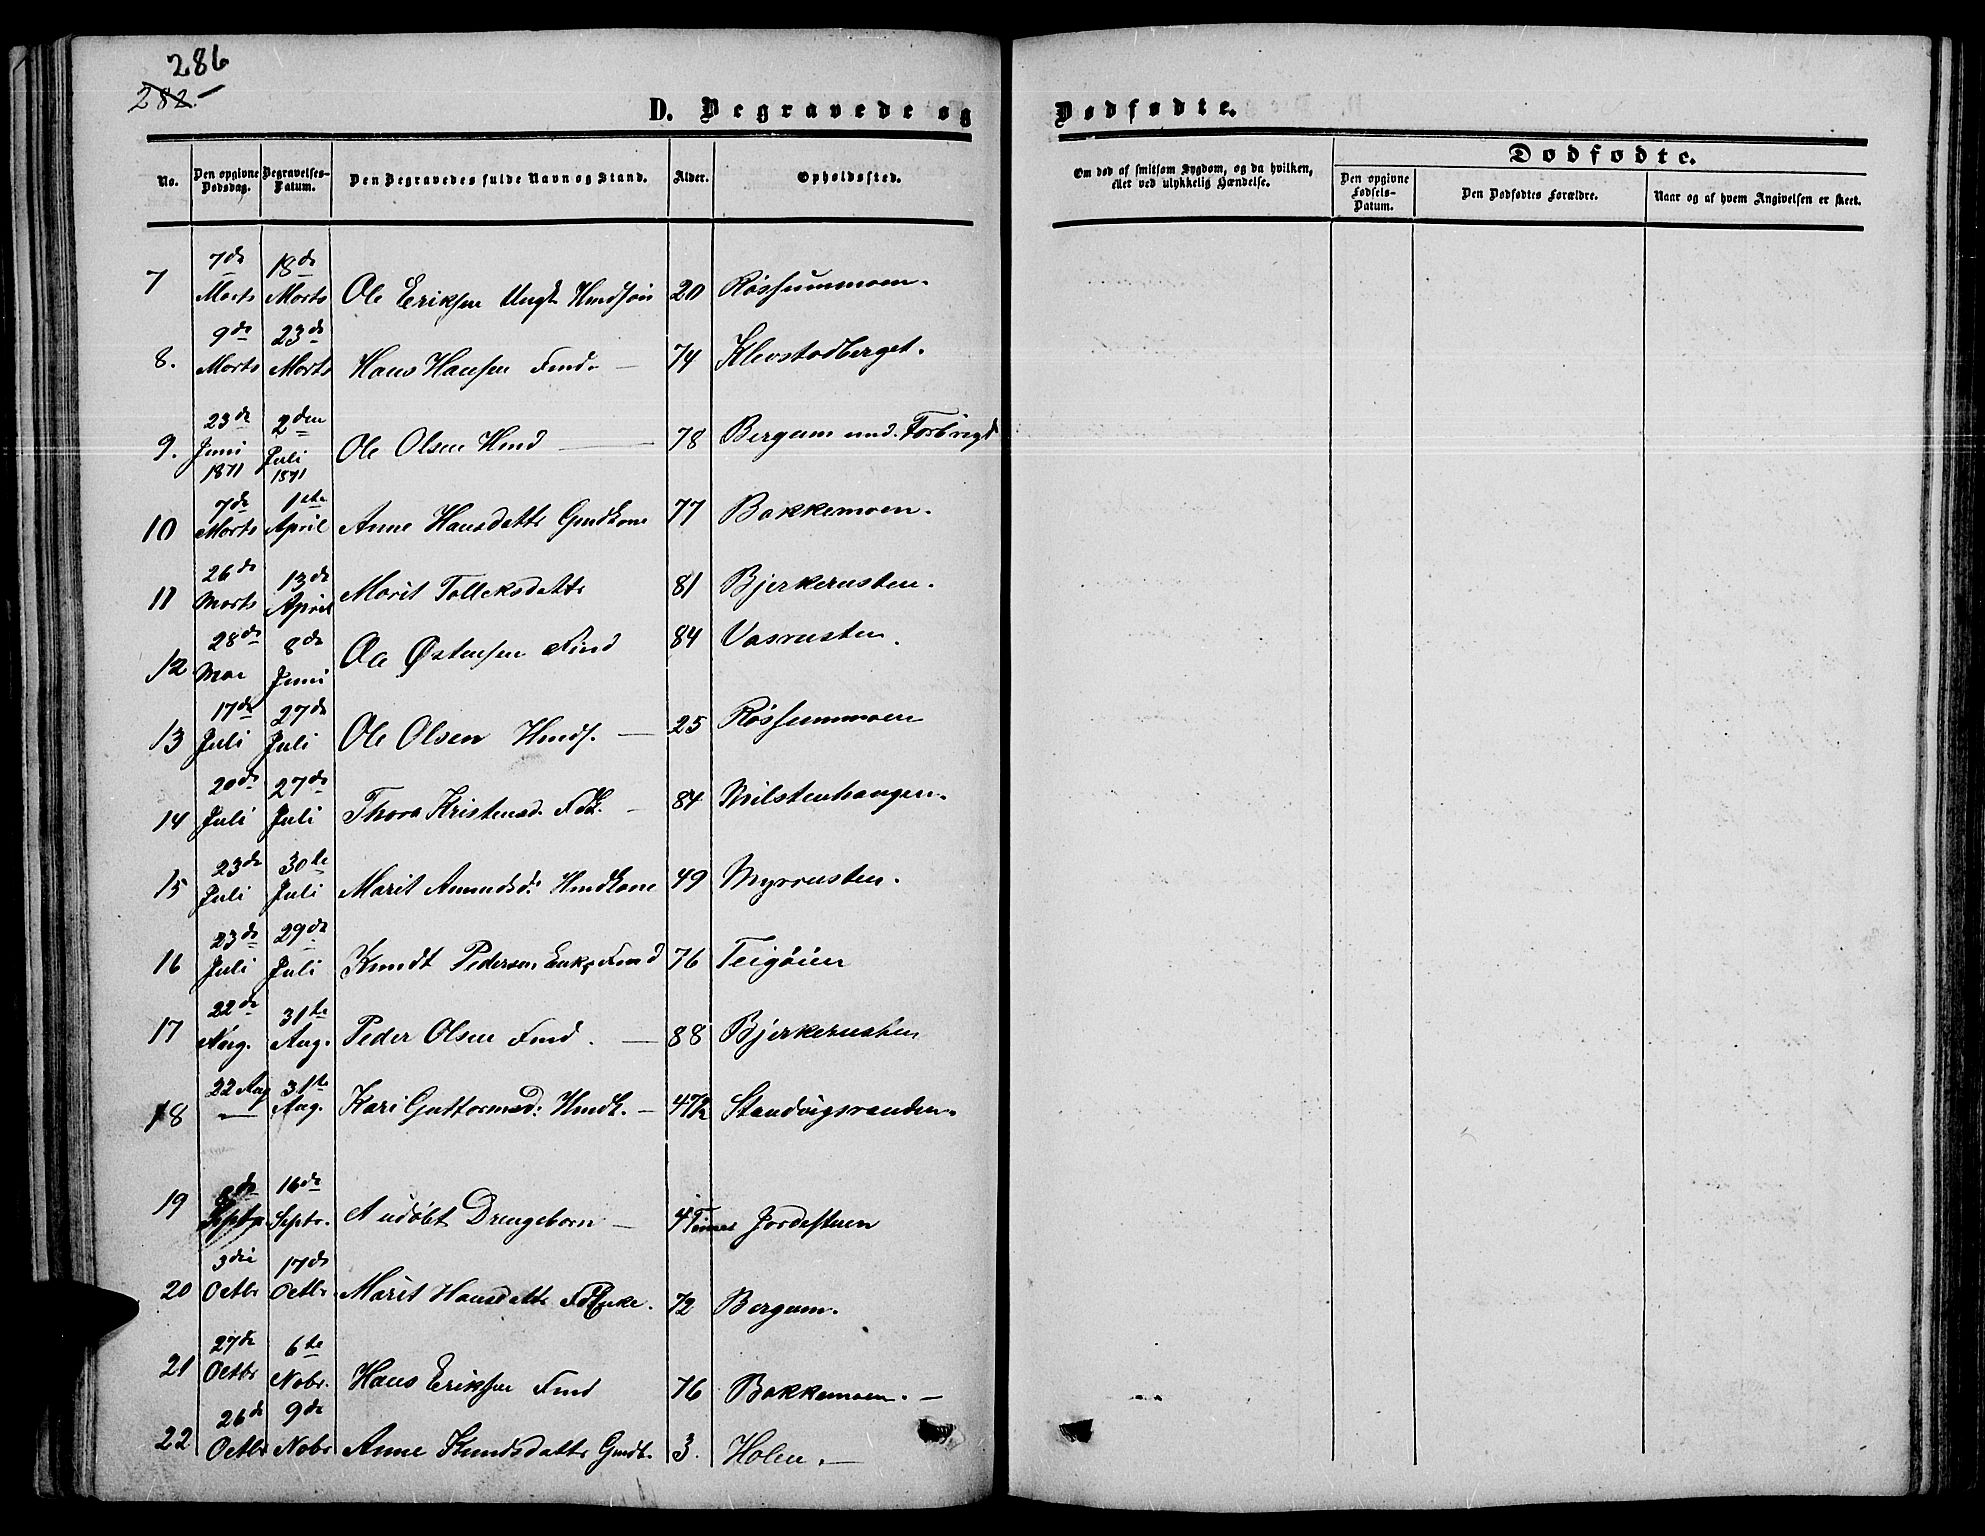 286
282.
D. Begravede og Dødfødte.
No. Den opgivne Dødsdag. Begravelses-Datum. Den Begravedes fulde Navn og Stand. Alder. Opholdssted.
Om død af smitsom Sygdom, og da hvilken, eller ved ulykkelig Hændelse.
Dødfødte.
Den opgivne Fødsels-Datum. Den Dødfødtes Forældre. Naar og af hvem Angivelsen er skeet.
7 7de Marts 18de Marts Ole Eriksen Ungk Hmdsøn 20 Røssummoen.
8. 9de Marts 23de Marts Hans Hansen Fmd. — 74 Klevstadberget.
9. 23de Juni 1871 2den Juli 1871 Ole Olsen Hmd — 78 Bergum und. Forbrigd
10 7de Marts 1ste April Anne Hansdattr Gmdkone 77 Bakkemoen.
11 26de Marts 13de April Marit Tolleksdattr 81 Bjerkerusten.
12 28de Mai 8de Juni Ole Østensen Find 84 Vasrusten.
13 17de Juli 27de Juli Ole Olsen Hmds. — 25 Røssummoen
14 20de Juli 27de Juli Thora Kristensd. Fdk. — 84 Milstenhaugen.
15 23de Juli 30te Juli Marit Amundsd: Hmdkone 49 Myrrusten.
16 23de Juli 29de Juli Knudt Pedersen Enk. Fmd 76 Teigøien
17 22de Aug. 31te Aug. Peder Olsen Fmd. — 88 Bjerkerusten
18 22 Aug — 31te Aug. Kari Guttormsd: Hmdk. — 47½ Standvigsranden.
19 8de Septr. 16de Septr. A udøbt Drengebarn — 4 Timer Jordesteen
20 3die Octbr 17de Octbr. Marit Hansdattr Fdenke. 72 Bergum.
21 27de Octbr 6te Nobr. Hans Eriksen Fmd 76 Bakkemoen. —
22 26de Octbr 9de Nobr Anne Knudsdattr Gmdt. 3. Holen. —